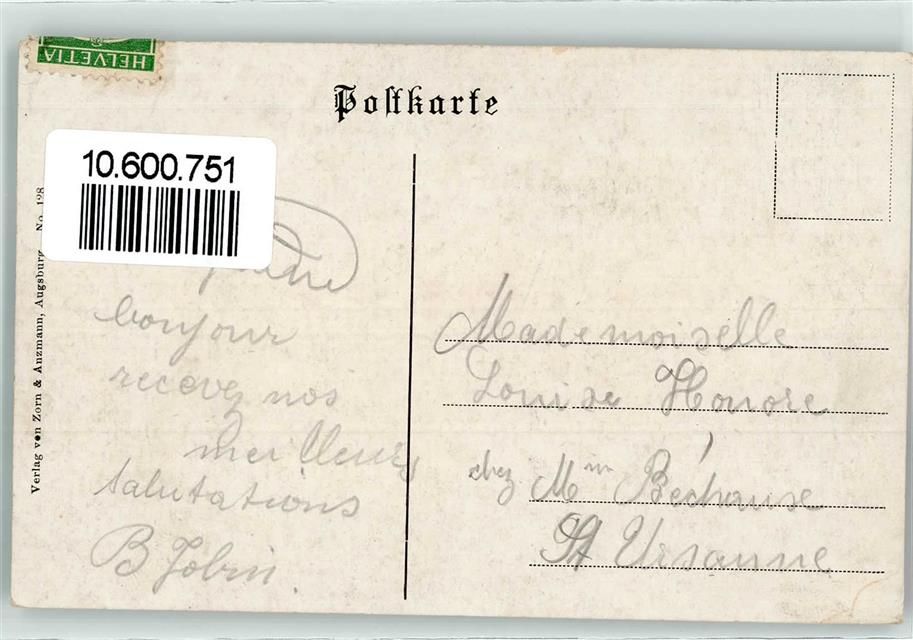 HELVETIA
Postkarte
10.600.751
Verlag von Zorn & Anzmann, Augsburg. No. 128
bonjour
recevez nos
meilleurs
salutations
B Jobin
Mademoiselle
Louise Honore
chez Mm Béchause
St Ursanne